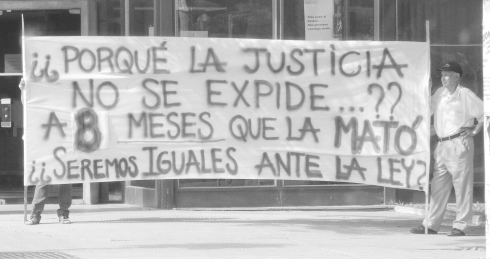 ¿¿PORQUÉ LA JUSTICIA
NO SE EXPIDE...??
A 8 MESES QUE LA MATÓ
¿¿SEREMOS IGUALES ANTE LA LEY?